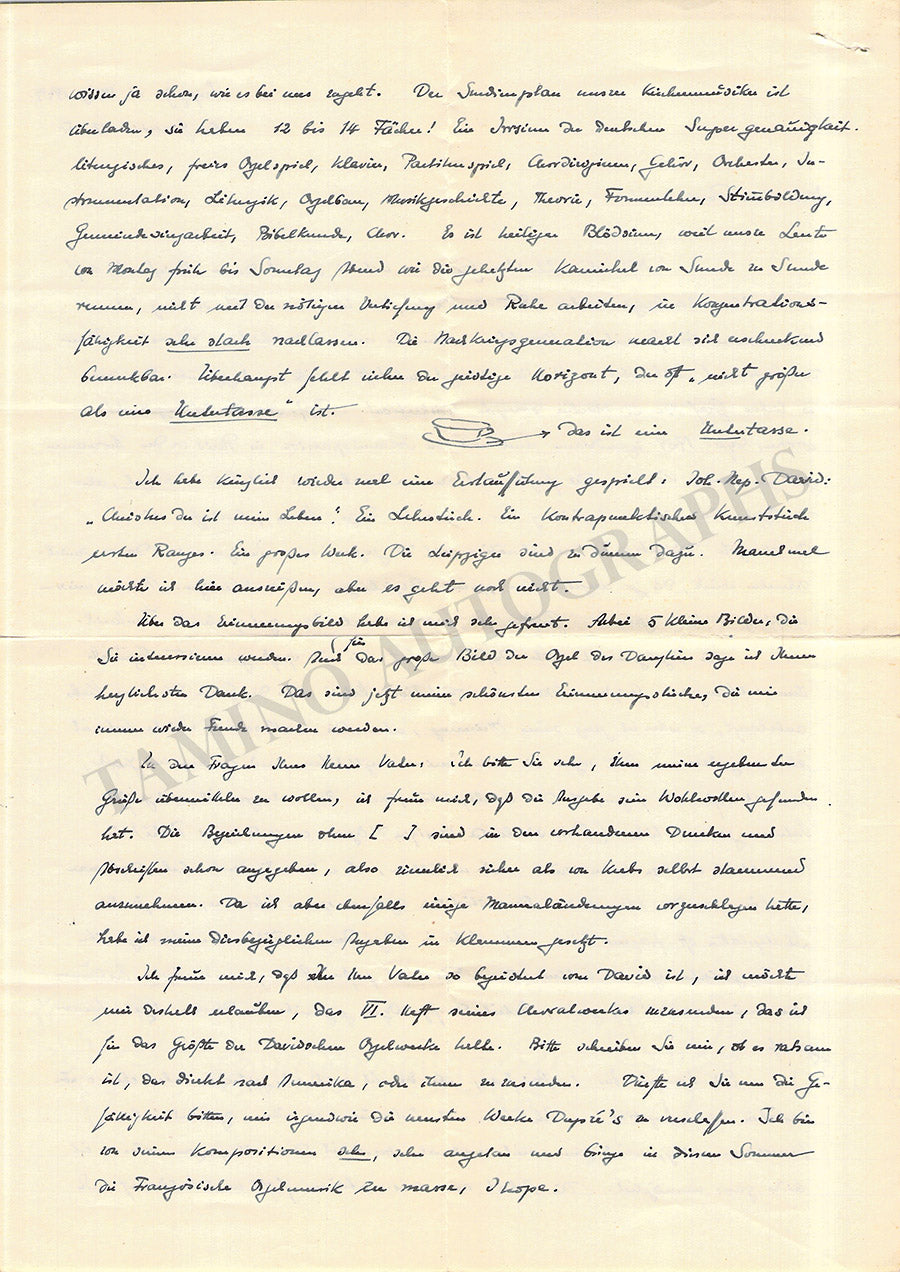 wissen ja schon, wie es bei uns zugeht. Der Studienplan unsrer Kirchenmusiker ist
überladen, sie haben 12 bis 14 Fächer! Ein Irrsinn der deutschen Supergenauigkeit.
liturgisches, freies Orgelspiel, Klavier, Partiturspiel, Chordirigieren, Gehör, Orchester, In-
strumentation, Liturgik, Orgelbau, Musikgeschichte, Theorie, Formenlehre, Stimbildung,
Gemeindesingarbeit, Bibelkunde, Chor. Es ist heiliger Blödsinn, weil unsre Leute
von Montag früh bis Sonntag Abend wie die gehetzten Karnickel von Stunde zu Stunde
rennen, nicht mit der nötigen Vertiefung und Ruhe arbeiten, in Konzentrations-
fähigkeit sehr stark nachlassen. Die Nachkriegsgeneration macht sich erschreckend
bemerkbar. Überhaupt fehlt vielen der geistige Horizont, der oft „nicht größer
als eine Untertasse" ist.
→ das ist eine Untertasse.
Ich habe kürzlich wieder mal eine Erstaufführung gespielt: Joh. Nep. David:
„Christus der ist mein Leben". Ein Lehrstück. Ein kontrapunktisches Kunststück
ersten Ranges. Ein großes Werk. Die Leipziger sind zu dumm dazu. Manchmal
möchte ich hier ausreißen, aber es geht noch nicht.
Über das Erinnerungsbild habe ich mich sehr gefreut. Anbei 5 kleine Bilder, die
Sie interessieren werden. Auch für das große Bild der Orgel des Damp sage ich Ihnen
herzlichsten Dank. Das sind jetzt meine schönsten Erinnerungsstücke, die mir
immer wieder Freude machen werden.
Zu den Fragen Ihres Herrn Vater: ich bitte Sie sehr, Ihm meine ergebensten
Grüße übermitteln zu wollen, ich freue mich, daß die Ausgabe sein Wohlwollen gefunden
hat. Die Bezeichnungen ohne [ ] sind in den vorhandenen Drucken und
Abschriften schon angegeben, also ziemlich sicher als von Krebs selbst stammend
anzunehmen. Da ich aber ebenfalls einige Manualänderungen vorzuschlagen hatte,
habe ich meine diesbezüglichen Angaben in Klammern gesetzt.
Ich freue mich, daß Ihr Vater so begeistert von David ist, ich möchte
mir deshalb erlauben, das VI. Heft seines Choralwerkes zuzusenden, das ich
für das Größte der Davidschen Orgelwerke halte. Bitte schreiben Sie mir, ob es ratsam
ist, das direkt nach Amerika, oder ihnen zuzusenden. Dürfte ich Sie um die Ge-
fälligkeit bitten, mir irgendwie die neusten Werke Dupré's zu verschaffen. Ich bin
von seinen Kompositionen sehr, sehr angetan und bringe in diesem Sommer
die Französische Orgelmusik en masse, I hope.
TAMINO AUTOGRAPHS